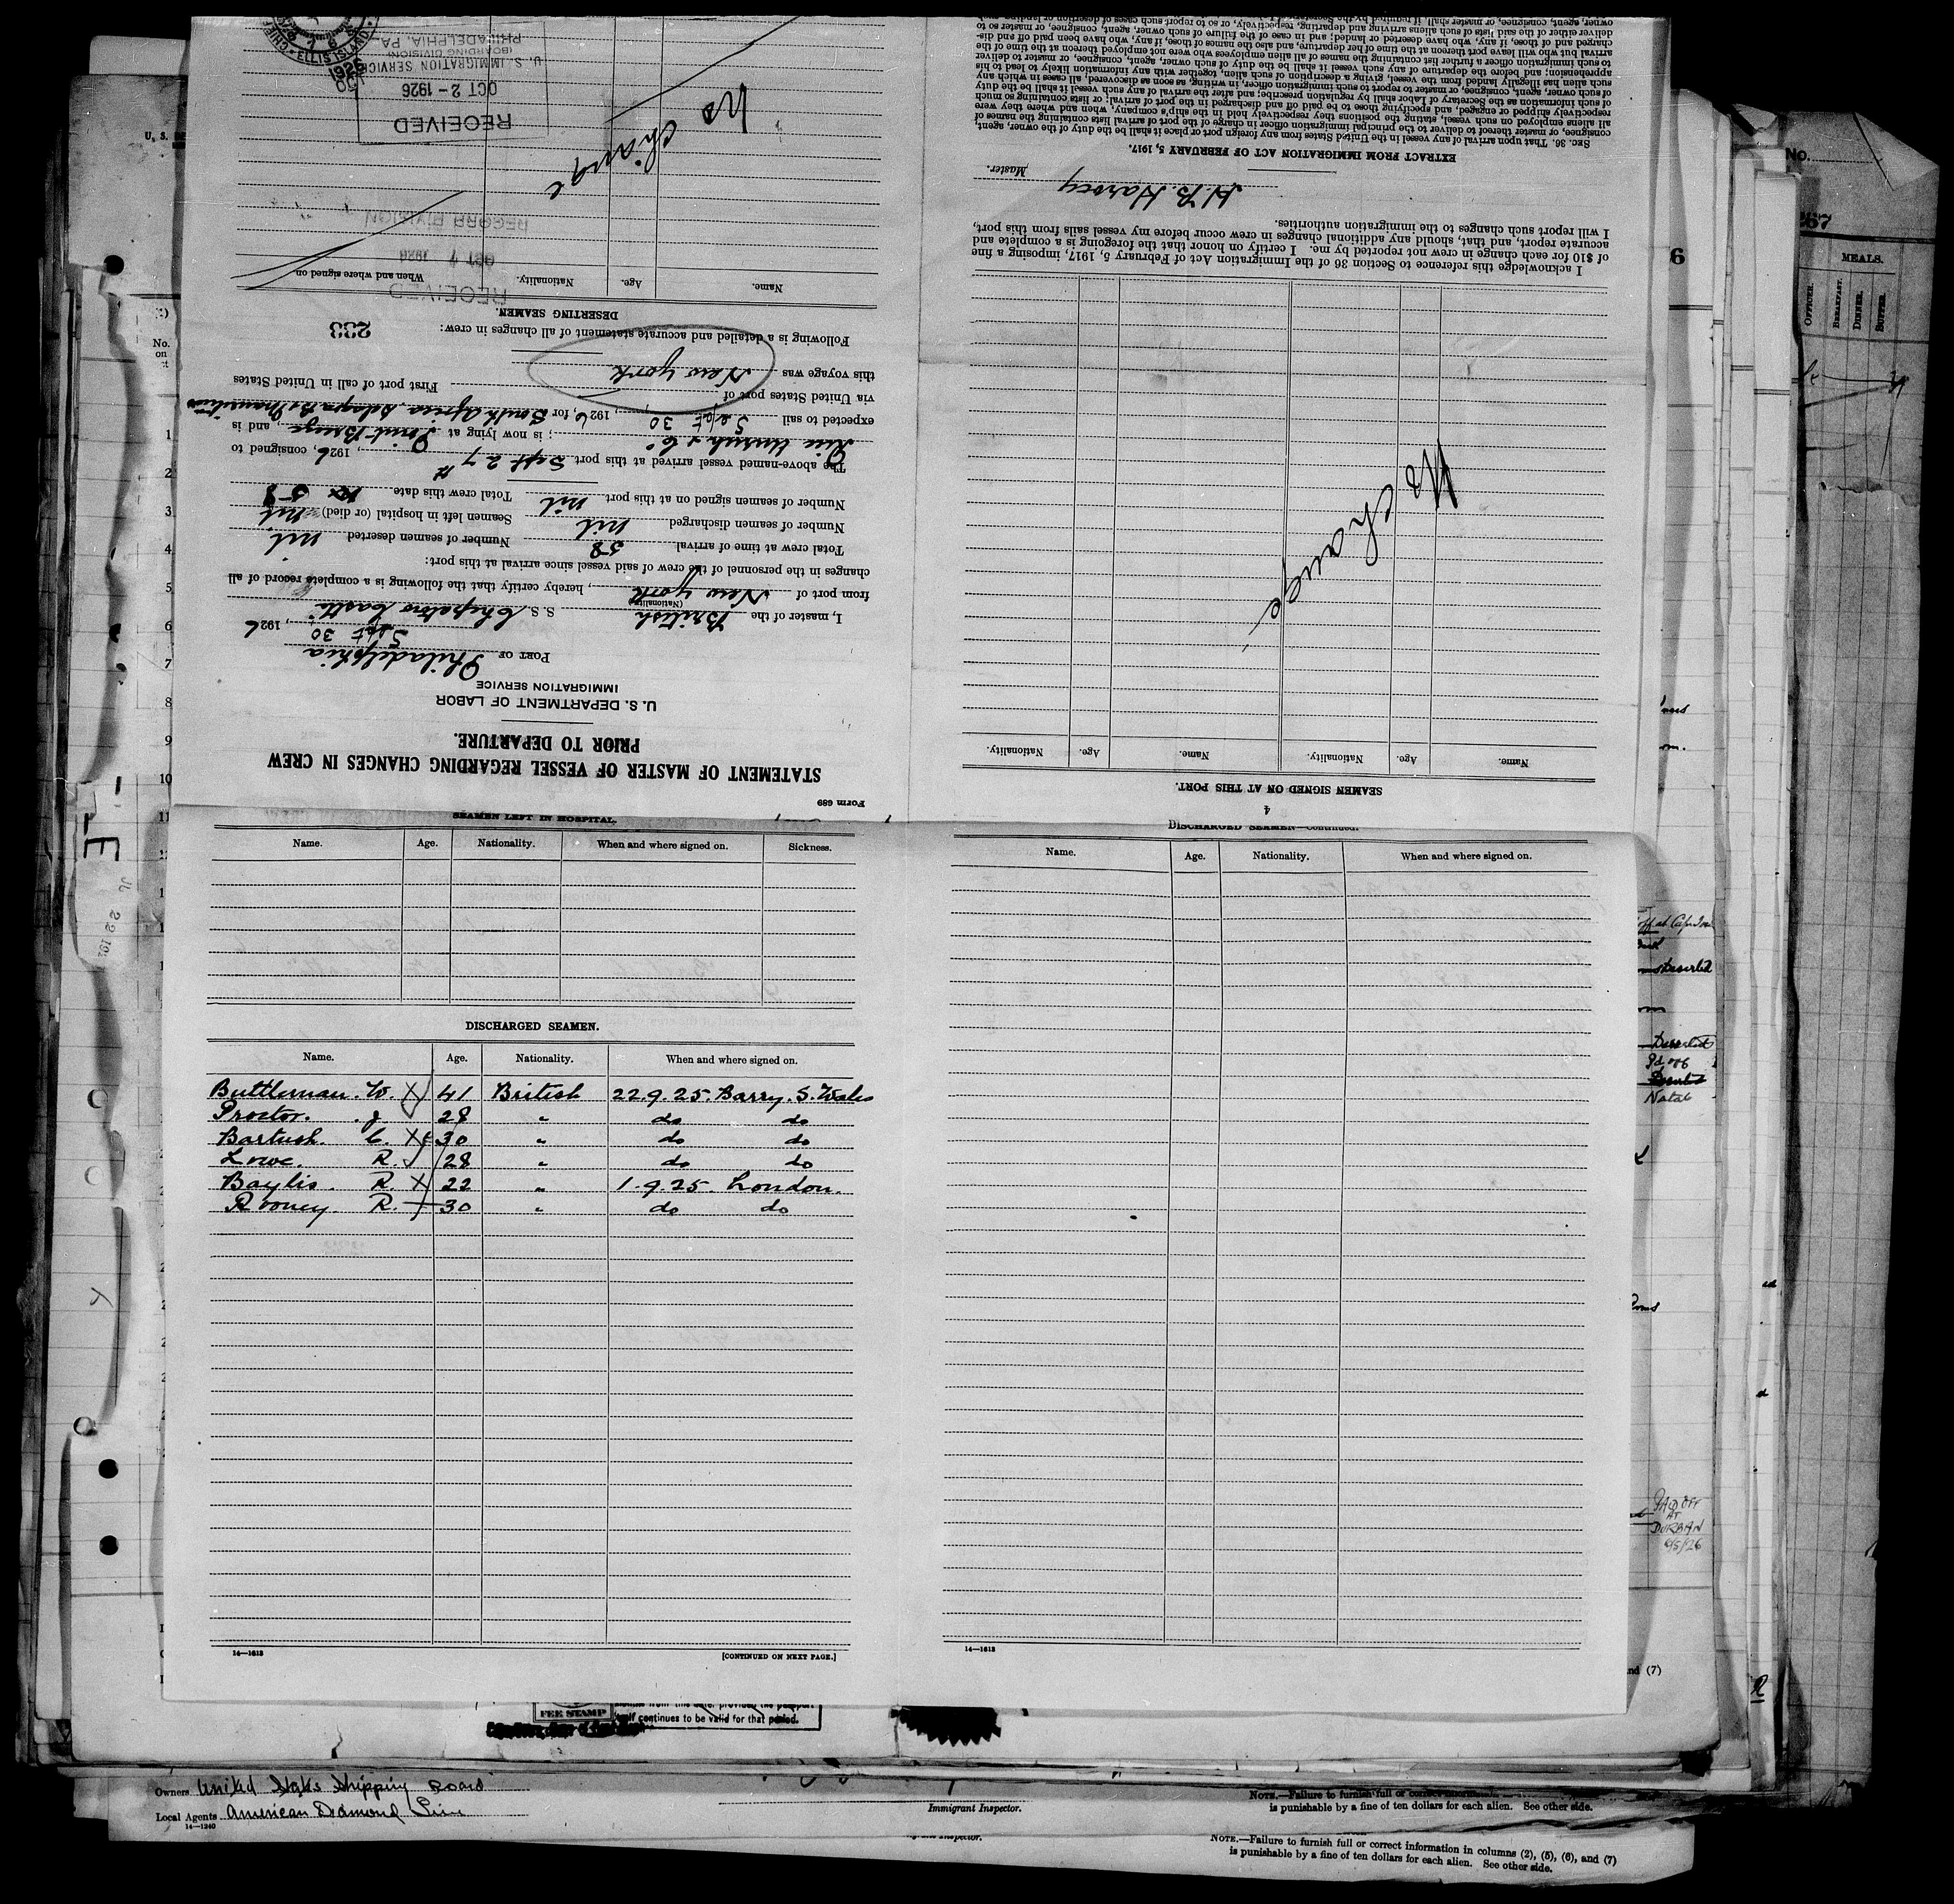 Form 689
STATEMENT OF MASTER OF VESSEL REGARDING CHANGES IN CREW
PRIOR TO DEPARTURE.
U. S. DEPARTMENT OF LABOR
IMMIGRATION SERVICE
PORT OF Philadelphia
Sept 30, 1926
I, master of the British S. S. Chepstow Castle
(Nationality)
from port of New York, hereby certify that the following is a complete record of all
changes in the personnel of the crew of said vessel since arrival at this port:
Total crew at time of arrival 58 Number of seamen deserted nil
Number of seamen discharged nil Seamen left in hospital (or died) nil
Number of seamen signed on at this port nil Total crew this date 58
The above-named vessel arrived at this port Sept 27th, 1926, consigned to
; is now lying at Point Breeze, and is
expected to sail Sept 30, 1926, for South Africa, Delagoa B & Mauritius
via United States port of
this voyage was New York First port of call in United States
Following is a detailed and accurate statement of all changes in crew:
233
DESERTING SEAMEN.
Name. Age. Nationality. When and where signed on
RECEIVED
OCT 7 1926
RECORD DIVISION
No change
RECEIVED
OCT 2 - 1926
U. S. IMMIGRATION SERVICE
(BOARDING DIVISION)
PHILADELPHIA, PA.
ELLIS ISLAND
1926
4
SEAMEN SIGNED ON AT THIS PORT.
Name. Age. Nationality. Name. Age. Nationality.
No change
I acknowledge this reference to Section 36 of the Immigration Act of February 5, 1917, imposing a fine
of $10 for each change in crew not reported by me. I certify on honor that the foregoing is a complete and
accurate report, and that, should any additional changes in crew occur before my vessel sails from this port,
I will report such changes to the immigration authorities.
H. B. Harvey
Master.
EXTRACT FROM IMMIGRATION ACT OF FEBRUARY 5, 1917.
Sec. 36. That upon arrival of any vessel in the United States from any foreign port or place it shall be the duty of the owner, agent,
consignee, or master thereof to deliver to the principal immigration officer in charge of the port of arrival lists containing the names of
all aliens employed on such vessel, stating the positions they respectively hold in the ship's company, when and where they were
respectively shipped or engaged, and specifying those to be paid off and discharged in the port of arrival; or lists containing so much
of such information as the Secretary of Labor shall by regulation prescribe; and after the arrival of any such vessel it shall be the duty
of such owner, agent, consignee, or master to report to such immigration officer, in writing, as soon as discovered, all cases in which any
such alien has illegally landed from the vessel, giving a description of such alien, together with any information likely to lead to his
apprehension; and before the departure of any such vessel it shall be the duty of such owner, agent, consignee, or master to deliver
to such immigration officer a further list containing the names of all alien employees who were not employed thereon at the time of the
arrival but who will leave port thereon at the time of her departure, and also the names of those, if any, who have been paid off and dis-
charged and of those, if any, who have deserted or landed; and in case of the failure of such owner, agent, consignee, or master so to
deliver either of the said lists of such aliens arriving and departing, respectively, or so to report such cases of desertion or landing
SEAMEN LEFT IN HOSPITAL.
Name. Age. Nationality. When and where signed on. Sickness.
DISCHARGED SEAMEN.
Name. Age. Nationality. When and where signed on.
Buttleman. W. X 41 British 22.9.25. Barry. S. Wales
Proctor. J 28 " do do
Bartush. C. X 30 " do do
Lowe. R. 28 " do do
Baylis. R. X 22 " 1.9.25. London.
Rooney. R. 30 " do do
14—1613 [CONTINUED ON NEXT PAGE.]
DISCHARGED SEAMEN—Continued.
Name. Age. Nationality. When and where signed on.
14—1613
No.
MEALS.
OFFICER. BREAKFAST. DINNER. SUPPER.
Deserted
Deserted
Pd off
Deserted
Natal
PAID OFF
AT
DURBAN
FEE STAMP
continues to be valid for that period.
Owners United States Shipping Board
Local Agents American Diamond Line
14—1240
Immigrant Inspector.
NOTE.—Failure to furnish full or correct
is punishable by a fine of ten dollars for each alien. See other side.
NOTE.—Failure to furnish full or correct information in columns (2), (5), (6), and (7)
is punishable by a fine of ten dollars for each alien. See other side.